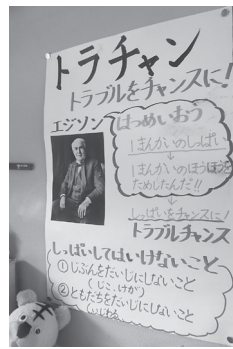 トラチャン
トラブルをチャンスに!
エジソン
はつめいおう
1まんかいのしっぱい
↓
1まんかいのほうほうを
ためしたんだ!!
↓
しっぱいをチャンスに!
トラブルチャンス
しっぱいしてはいけないこと
①じぶんをだいじにしないこと
(じこ、けが)
②ともだちをだいじにしないこと
(いじわる